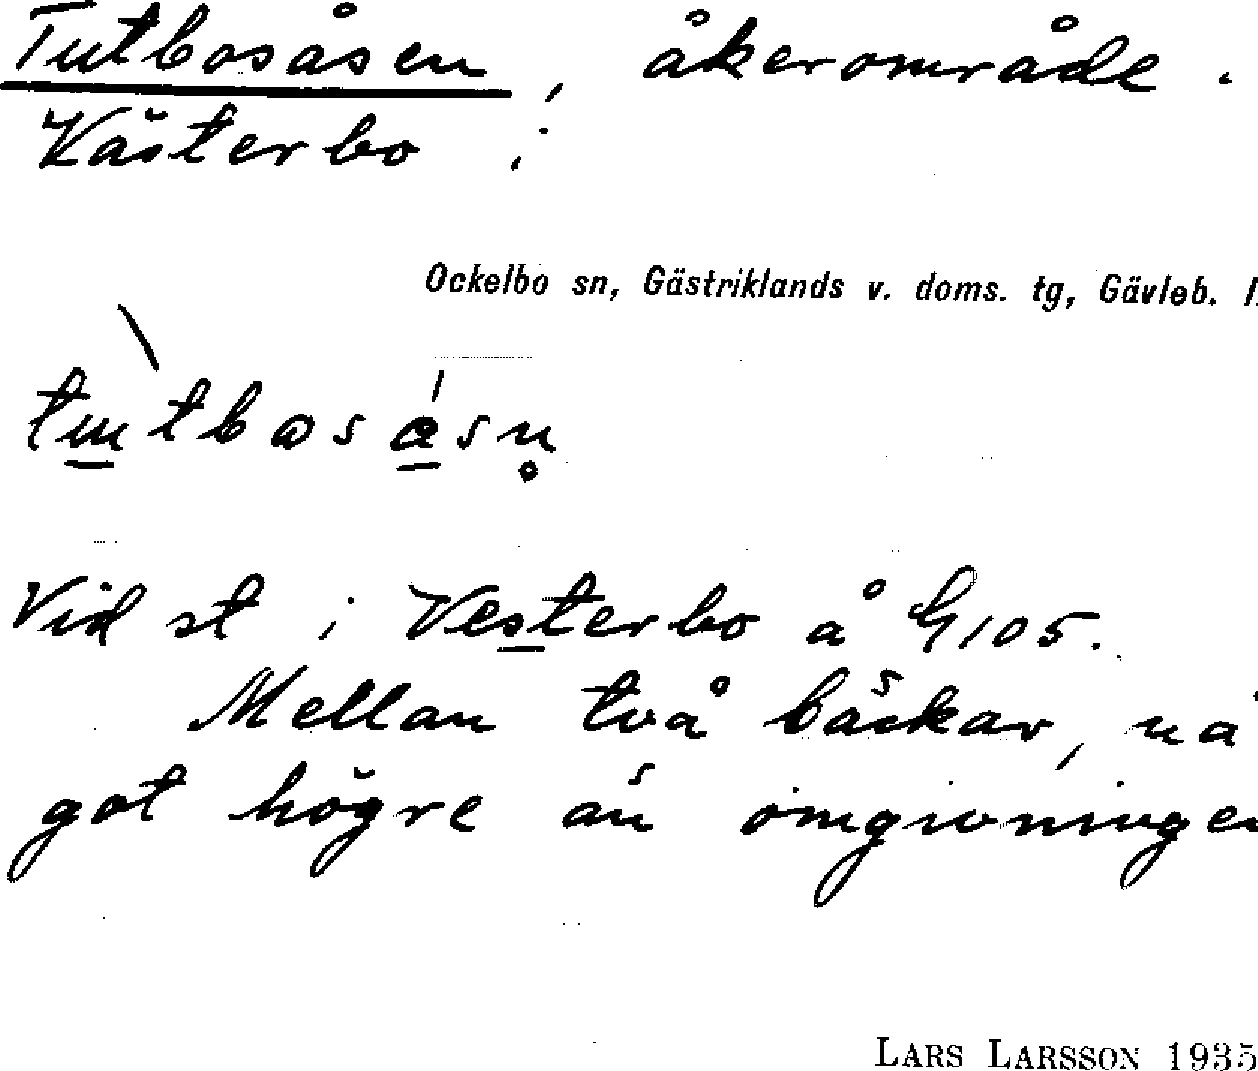 Tutbosåsen, åkerområde.
Västerbo:
Ockelbo sn, Gästriklands v. doms. tg, Gävleb. l.
Vid st i Vesterbo å G105.
Mellan två bäckar, nå
got högre än omgivningen
LARS LARSSON 1935